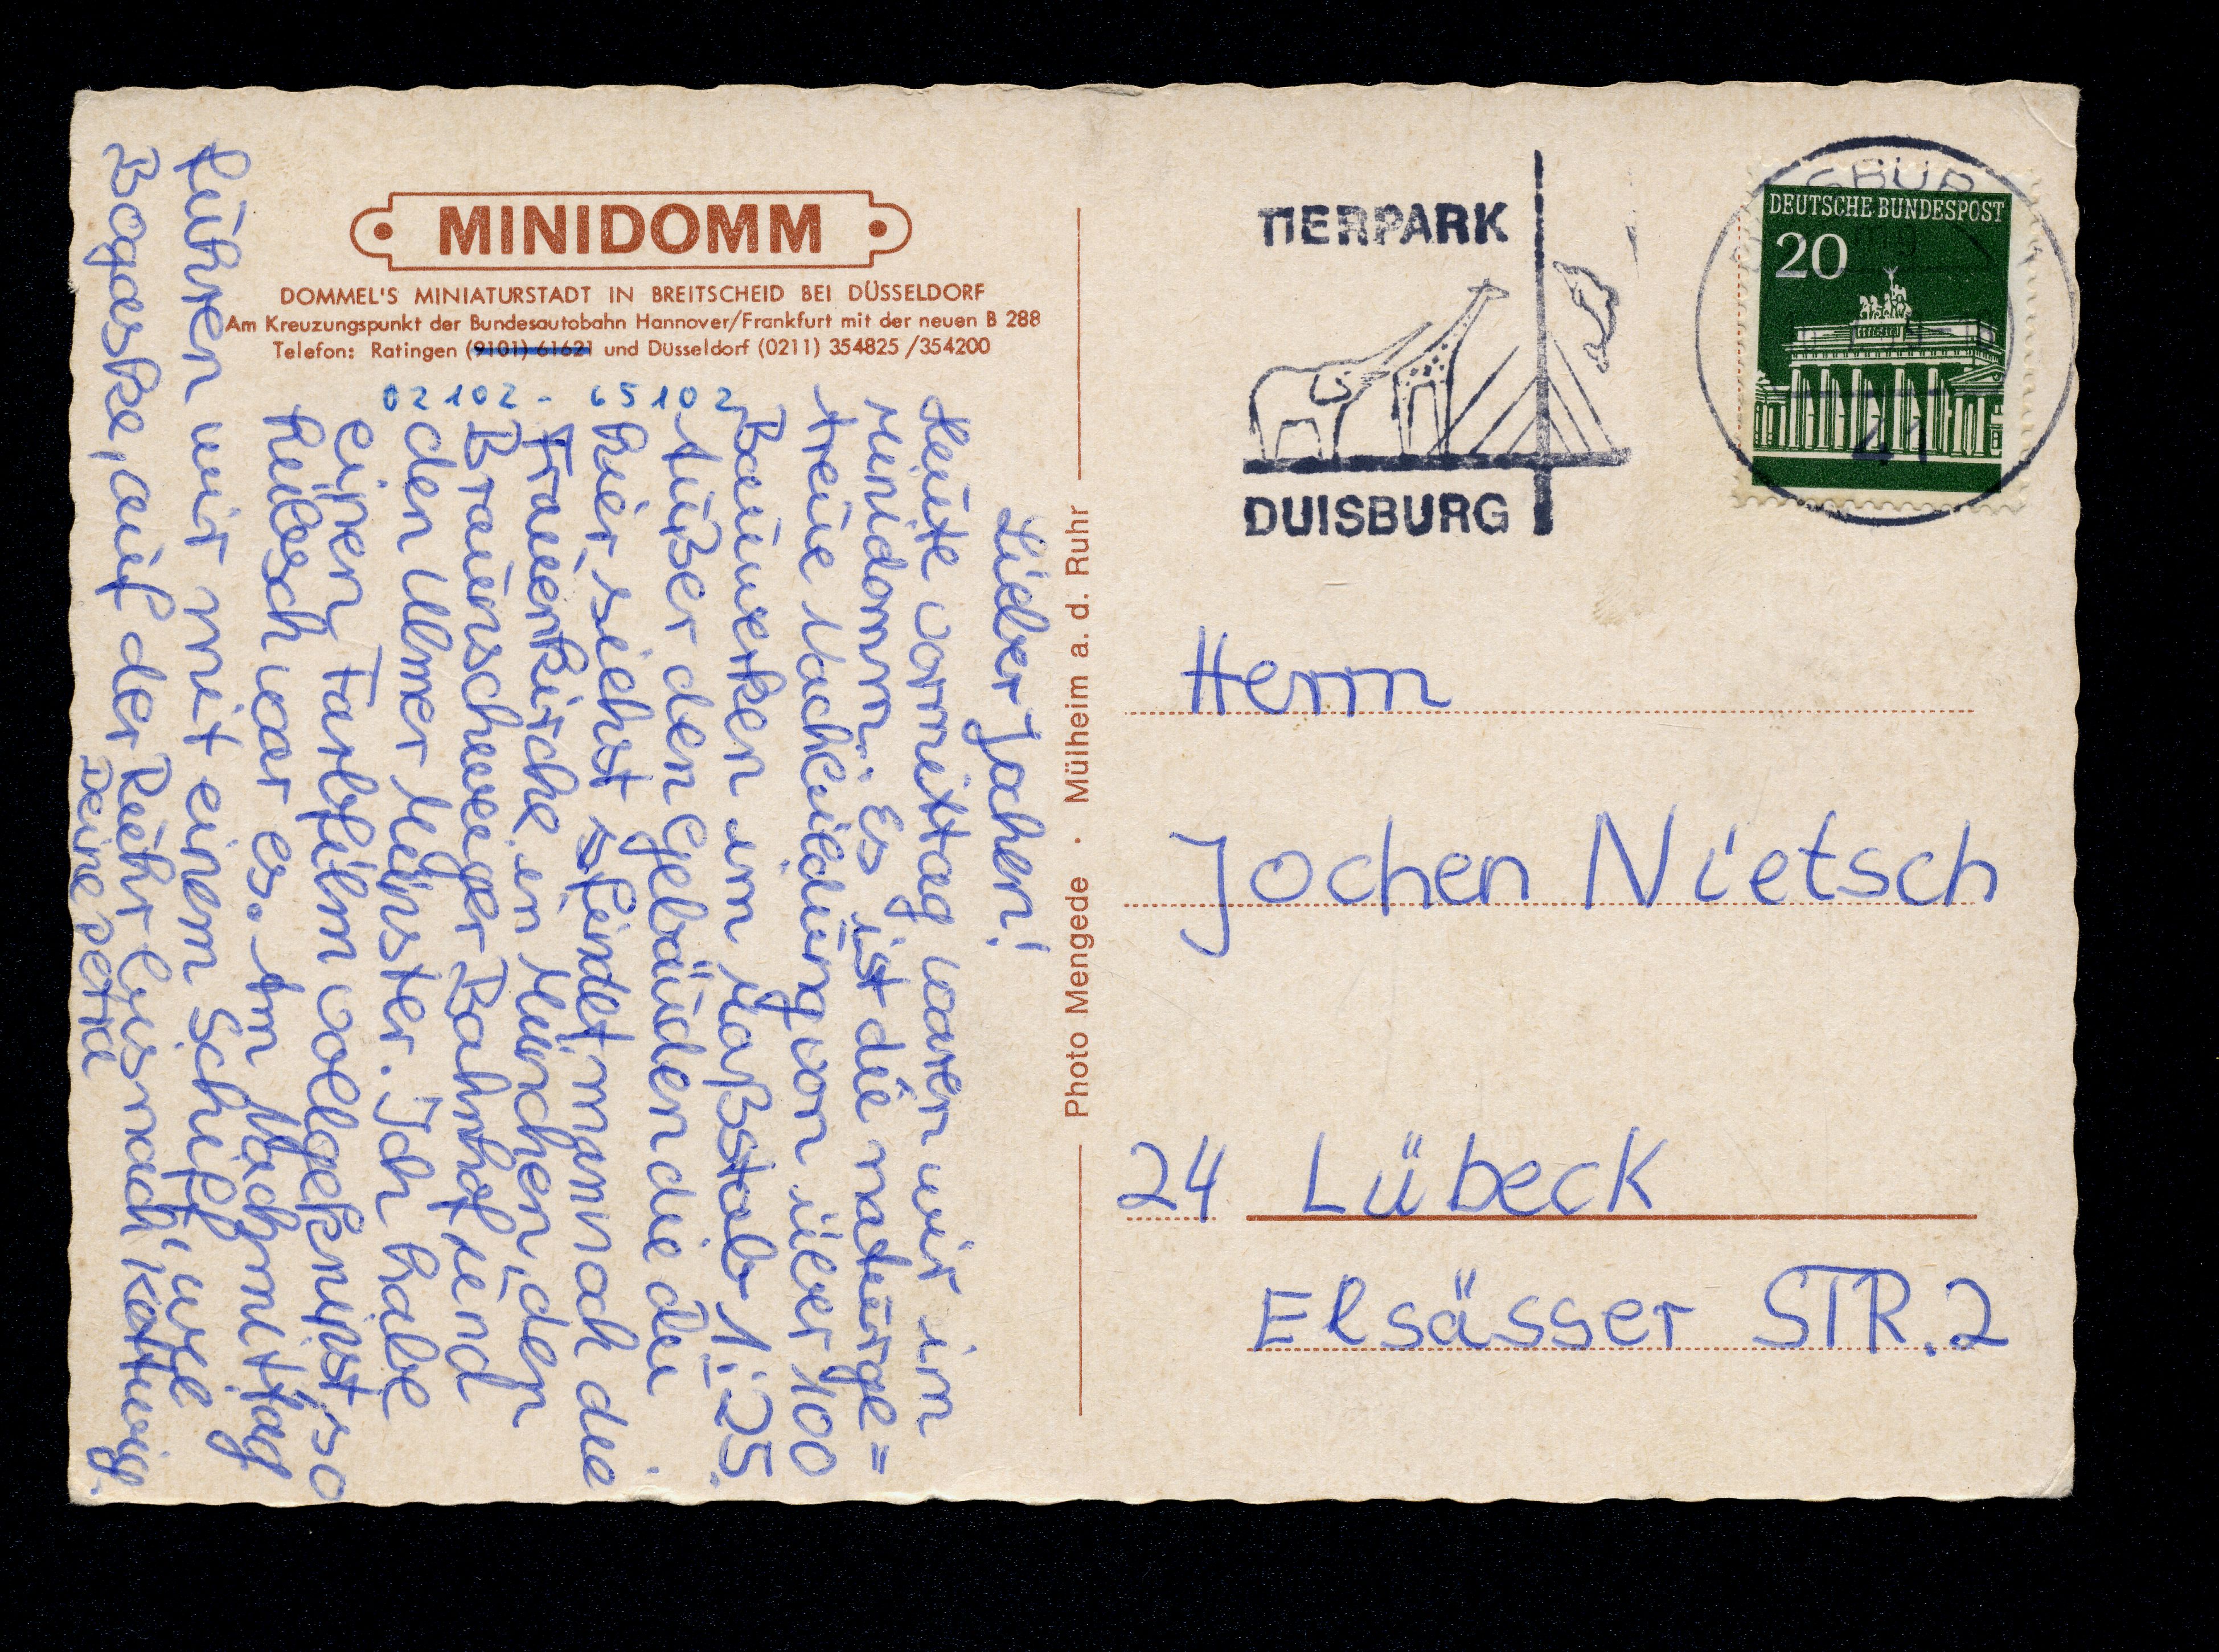 MINIDOMM
DOMMEL'S MINIATURSTADT IN BREITSCHEID BEI DÜSSELDORF
Am Kreuzungspunkt der Bundesautobahn Hannover/Frankfurt mit der neuen B 288
Telefon: Ratingen (9101) 61621 und Düsseldorf (0211) 354825 /354200
02102 - 65102
Lieber Jochen!
Heute vormittag waren wir im
minidomm. Es ist die naturge=
treue Nachbildung von über 100
Bauwerken im Maßstab 1:25.
Außer den Gebäuden die du
hier siehst findet man noch die
Frauenkirche in München, den
Braunschweiger Bahnhof und
den Ulmer Münster. Ich habe
einen Farbfilm vollgeknipst so
hübsch war es. Am Nachmittag
fuhren wir mit einem Schiff, wie
Bogaske, auf der Ruhr bis nach Kettwig.
Deine Petra
Photo Mengede · Mülheim a. d. Ruhr
TIERPARK
DUISBURG
DEUTSCHE BUNDESPOST
20
41
Herrn
Jochen Nietsch
24 Lübeck
Elsässer STR. 2